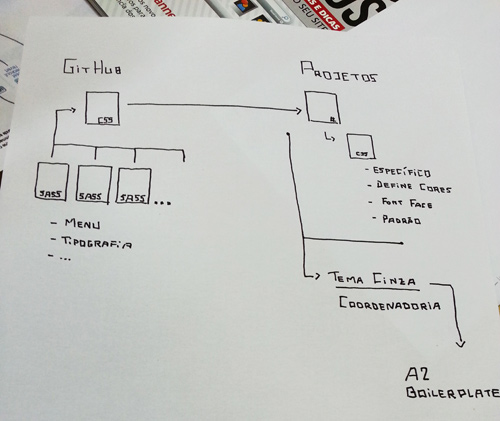 E DICAS
O SEU SITE
GitHub
CSS
SASS
SASS
SASS ...
- MENU
- TIPOGRAFIA
- ...
PROJETOS
CSS
- ESPECÍFICO
- DEFINE CORES
- FONT FACE
- PADRÃO
TEMA CINZA
COORDENADORIA
A2
BOILERPLATE